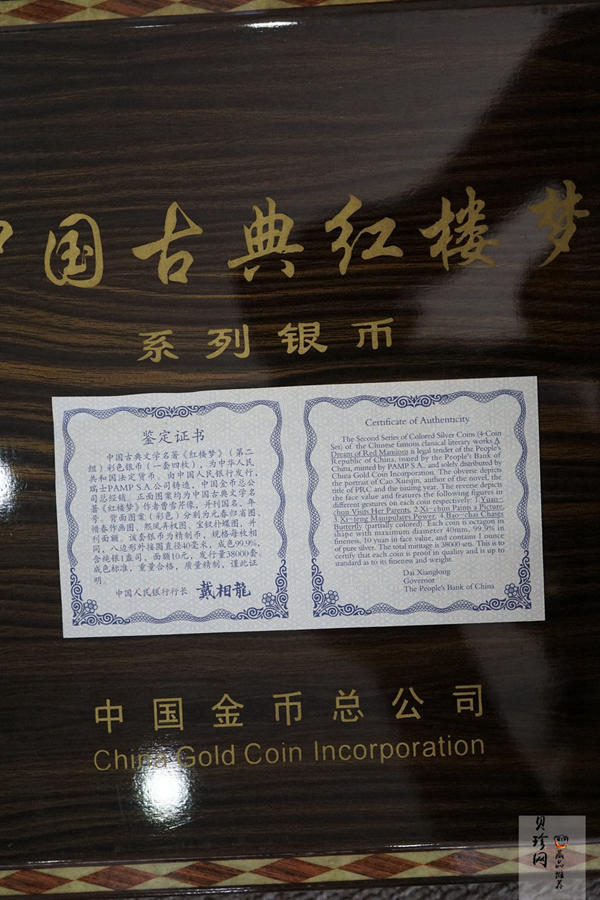 中国古典红楼梦
系列银币
鉴定证书
中国古典文学名著《红楼梦》(第二
组)彩色银币(一套四枚),为中华人
民共和国法定货币,由中国人民银行发行,
瑞士PAMP S.A.公司铸造,中国金币总公
司总经销。正面图案均为中国古典文学名
著《红楼梦》作者曹雪芹像,并刊国名、年
号。背面图案(彩色)分别为元春归省图、
惜春作画图、熙凤弄权图、宝钗扑蝶图,并
刊面额。该套银币为精制币,规格每枚相
同,八边形外接圆直径40毫米,成色99.9%,
含纯银1盎司,面额10元,发行量38000套
成色标准,重量合格,质量精制,谨此证
明。
中国人民银行行长 戴相龙
Certificate of Authenticity
The Second Series of Colored Silver Coins (4-Coin
Set) of the Chinese famous classical literary works A
Dream of Red Mansions is legal tender of the People's
Republic of China, issued by the People's Bank of
China, minted by PAMP S.A., and solely distributed by
China Gold Coin Incorporation. The obverse depicts
the portrait of Cao Xueqin, author of the novel, the
title of PRC and the issuing year. The reverse depicts
the face value and features the following figures in
different gestures on each coin respectively: 1.Yuan-
chun Visits Her Parents, 2.Xi-chun Paints a Picture,
3.Xi-feng Manipulates Power, 4.Bao-chai Chases
Butterfly (partially colored). Each coin is octagon in
shape with maximum diameter 40mm, 99.9% in
fineness, 10 yuan in face value, and contains 1 ounce
of pure silver. The total mintage is 38000 sets. This is to
certify that each coin is proof in quality and is up to
standard as to its fineness and weight.
Dai Xianglong
Governor
The People's Bank of China
中国金币总公司
China Gold Coin Incorporation
贝珍网
藏品推荐